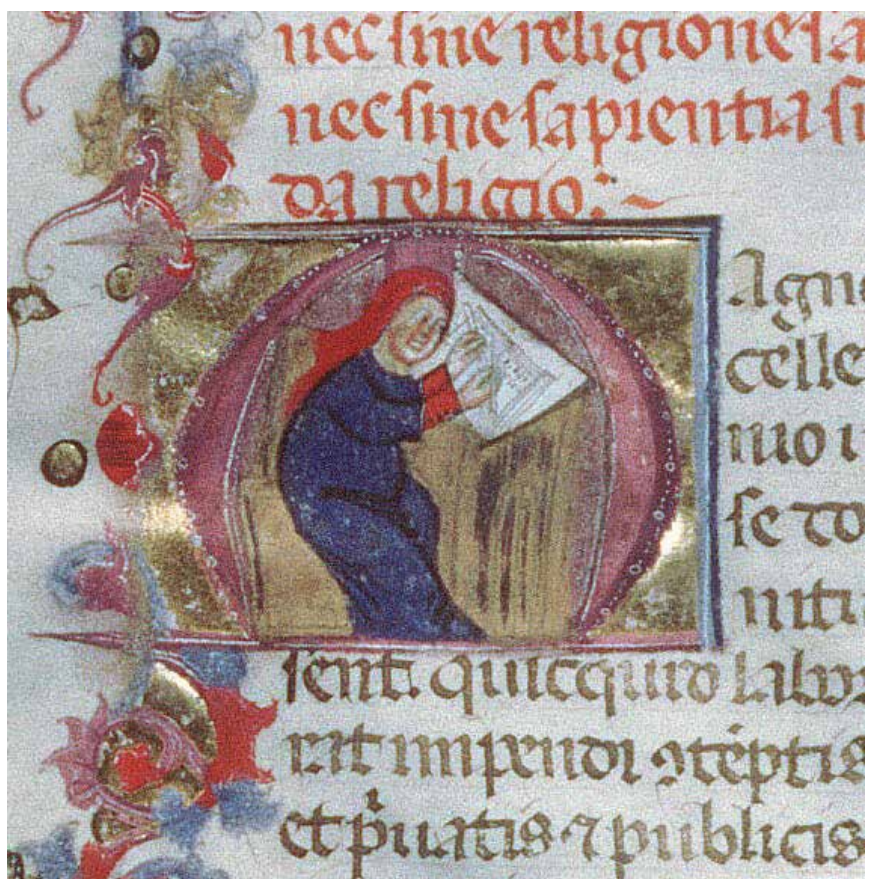 nec sine religione sa
nec sine sapientia si
da religio:~
M
Agno
celle
nio i
se to
niti
sent. quicquid labor
rat impendi ꝯtēptis
et pͥuatis ⁊ publicis